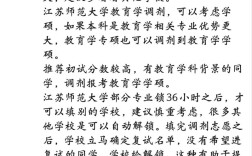 江苏师范大学教育学调剂，可以考虑学
硕，如果本科是教育学相关专业优势更
大，教育学专硕也可以调剂到教育学学
硕。
推荐初试分数较高，有教育学科背景的同
学，调剂报考教育学学硕。
江苏师范大学部分专业锁36小时之后，才
可以填别的学校，建议慎重考虑，很多其
他学校是可以自动解锁。填完调剂志愿之
后，学校立马确定复试名单，没有希望进